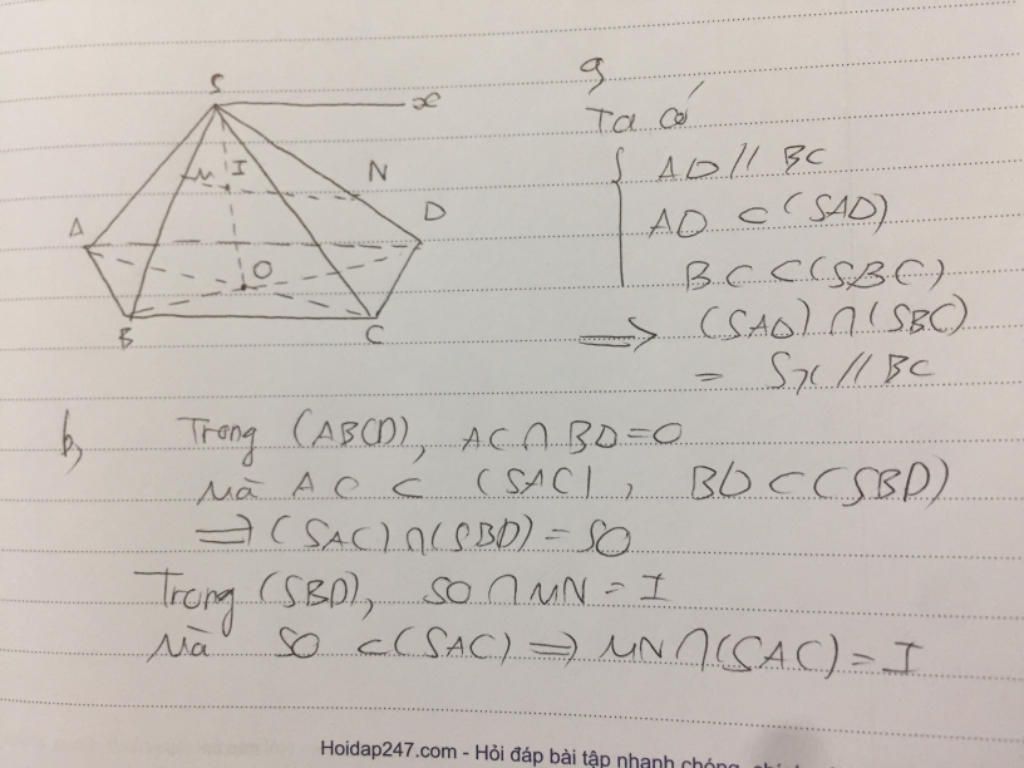 S
x
M I
N
A
D
O
B
C
a,
Ta có
AD // BC
AD ⊂ (SAD)
BC ⊂ (SBC)
⟹ (SAD) ∩ (SBC)
= Sx // BC
b, Trong (ABCD), AC ∩ BD = O
Mà AC ⊂ (SAC), BD ⊂ (SBD)
⟹ (SAC) ∩ (SBD) = SO
Trong (SBD), SO ∩ MN = I
Mà SO ⊂ (SAC) ⟹ MN ∩ (SAC) = I
Hoidap247.com - Hỏi đáp bài tập nhanh chóng,